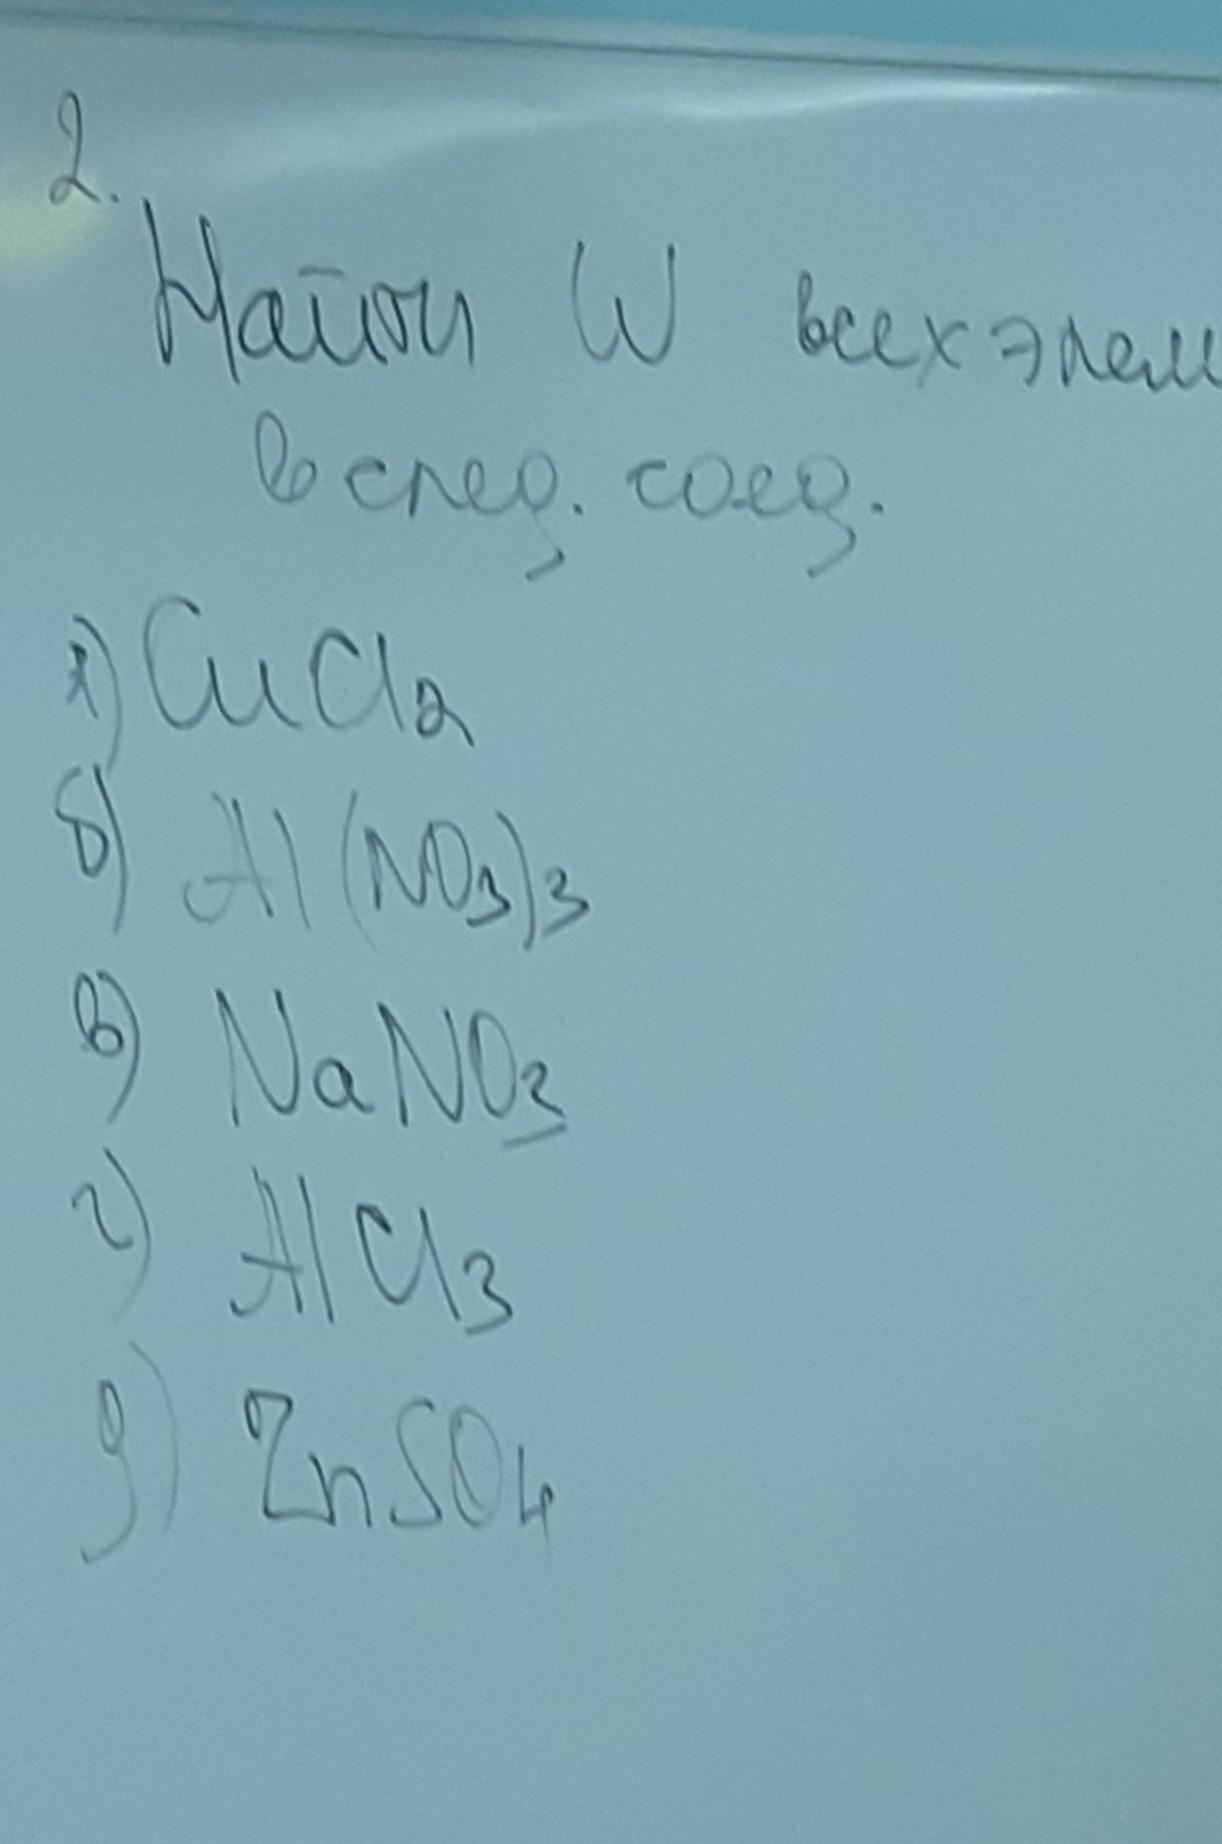 2.
Найти W всех элем
в след. соед.
а) CuCl2
б) Al(NO3)3
в) NaNO3
г) AlCl3
д) ZnSO4